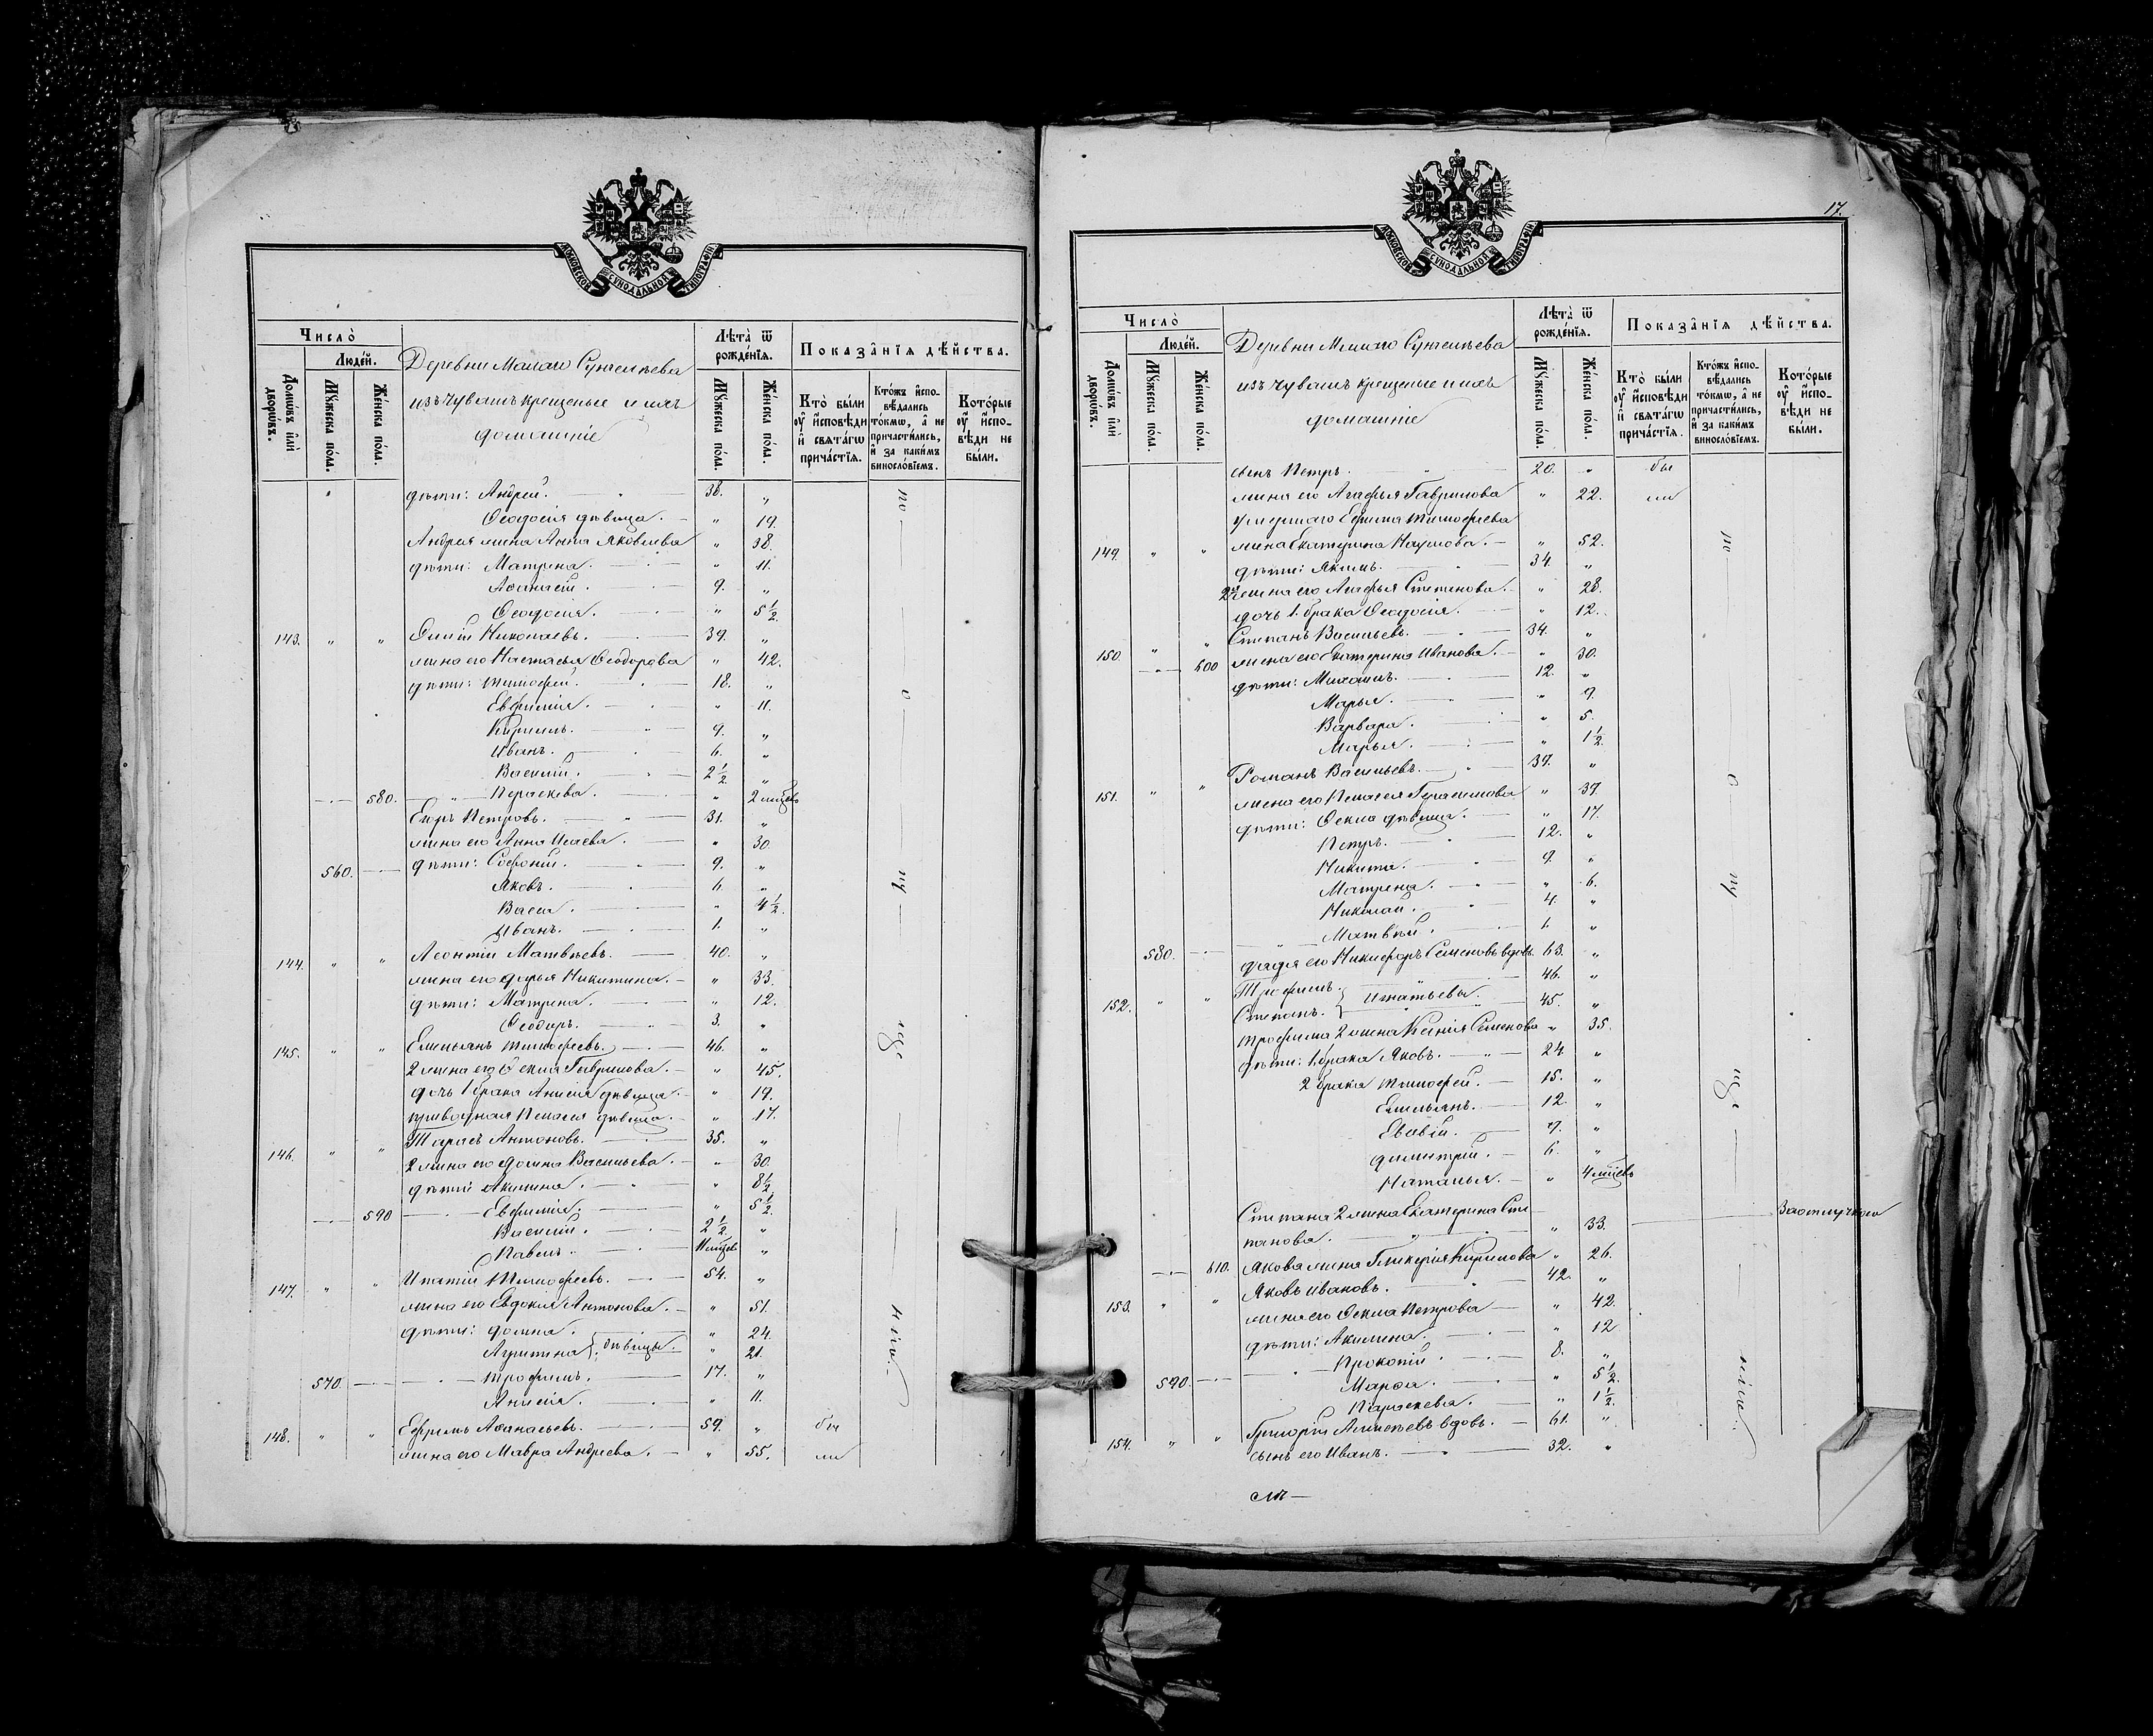 МОСКОВСКОЙ СѴНОДАЛЬНОЙ ТИПОГРАФІИ
Число̀
Люде́й.
Домѡ́въ и҆лѝ дворѡ́въ.
Мꙋ́жеска по́ла.
Же́нска по́ла.
Деревни Малаго
изъ чувашъ крещеные и ихъ
домашніе
Лѣ́та ѿ рожде́нїѧ.
Мꙋ́жеска по́ла.
Же́нска по́ла.
Показа̂нїѧ дѣ́йства.
Кто̀ бы́ли ᲂу҆ и҆́сповѣди и҆ свѧта́гѡ прича́стїѧ.
Кто́жъ и҆спо-вѣ́дались то́кмѡ, а҆ не причасти́лись, и҆ за каки́мъ винословїемъ.
Кото́рые ᲂу҆ и҆́спо-вѣди не бы́ли.
дѣти: Андрей. 38. "
Ѳеодосія дѣвица. " 19.
Андрея жена Анна Яковлева " 38.
дѣти: Матрена. " 11.
Аѳанасій. 9. "
Ѳеодосія. " 5 1/2.
143. " " Николаевъ. 39. "
жена его Настасья Ѳеодорова " 42.
дѣти: Тимофей. 18. "
Евфимія. " 11.
Кирилъ. 9. "
Иванъ. 6. "
Василій. 2 1/2. "
580. Пераскева. " 2 мѣсев
Егоръ Петровъ. 31. "
жена его Анна Исаева. " 30.
560. дѣти: Софоній. 9. "
Яковъ. 6. "
Васса. " 4 1/2.
Иванъ. 1. "
144. " " Леонтій Матвѣевъ. 40. "
жена его Дарья Никитина. " 33.
дѣти: Матрена. " 12.
Ѳеодоръ. 3. "
145. " " Емельянъ Тимофеевъ. 46. "
2 жена его Ѳекла Гаврилова. " 45.
дочь 1 брака Анисія дѣвица. " 19.
приводная Пелагея дѣвица. " 17.
146. " " Тарасъ Антоновъ. 35. "
2 жена его Домна Васильева. " 30.
дѣти: Акилина. " 8 1/2
590 Евфимія. " 5 1/2.
Василій. 2 1/2 "
Павелъ. "
147. " " Игнатій Тимофеевъ. 54. "
жена его Евдокія Антонова. " 51.
дѣти: Домна. " 24.
Агрипина дѣвицы. " 21.
570. Трофимъ. 17. "
Анисія. " 11.
148. " " Ефремъ Аѳанасьевъ. 59. " бы
жена его Мавра Андреева. " 55. ли
по
о
ну
жде
нію.
17.
МОСКОВСКОЙ СѴНОДАЛЬНОЙ ТИПОГРАФІИ
Число̀
Люде́й.
Домѡ́въ и҆лѝ дворѡ́въ.
Мꙋ́жеска по́ла.
Же́нска по́ла.
Деревни Малаго
изъ чувашъ крещеные и ихъ
домашніе
Лѣ́та ѿ рожде́нїѧ.
Мꙋ́жеска по́ла.
Же́нска по́ла.
Показа̂нїѧ дѣ́йства.
Кто̀ бы́ли ᲂу҆ и҆́сповѣди и҆ свѧта́гѡ прича́стїѧ.
Кто́жъ и҆спо-вѣ́дались то́кмѡ, а҆ не причасти́лись, и҆ за каки́мъ винословїемъ.
Кото́рые ᲂу҆ и҆́спо-вѣди не бы́ли.
сынъ Петръ. 20. " бы
жена его Агафья Гаврилова " 22. ли
умершаго Ефима Тимофеева
149. " " жена Екатерина Наумова. " 52.
дѣти: Якимъ. 34. "
2я жена его Агафья Степанова. " 28.
дочь 1. брака Ѳеодосія. " 12.
150. " " Степанъ Васильевъ. 34. "
600 жена его Екатерина Иванова. " 30.
дѣти: Михаилъ. 12. "
Марья. " 9.
Варвара. " 5.
Марья. " 1 1/2.
151. " " Романъ Васильевъ. 37. "
жена его Пелагея Герасимова " 37.
дѣти: Ѳекла дѣвица. " 17.
Петръ. 12. "
Никита. 9. "
Матрена. " 6.
Николай. 4. "
Матвѣй. 1. "
580. дядя его Никифоръ Семеновъ вдовъ. 63. "
152. " " Трофимъ. 46. "
Степанъ. Игнатьевы. 45. "
Трофима 2 жена Ксенія Семенова " 35.
дѣти: 1. брака Яковъ. 24. "
2 брака Тимофей. 15. "
Емельянъ. 12. "
Евсевій. 9. "
Димитрій. 6. "
Наталья. " 4 мѣсев
Степана 2 жена Екатерина Сте-
панова. " 33. За отлучкою
610. Якова жена Гликерія Кирилова " 26.
153. " " Яковъ Ивановъ. 42. "
жена его Ѳекла Петрова " 42.
дѣти: Акилина. " 12
Прокопій. 8. "
590. Марѳа. " 5 1/2.
Параскева. " 1 1/2.
154. " " Григорій Алексѣевъ вдовъ. 61. "
сынъ его Иванъ. 32. "
по
о
ну
жде
нію.